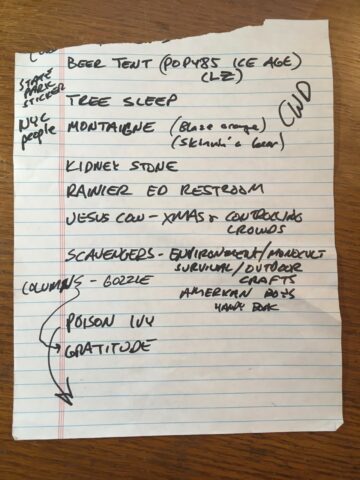 BEER TENT (POPY85 ICE AGE)
(LZ)
STATE
PARK
STICKER
TREE SLEEP
CWD
NYC
people
MONTAIGNE (Blaze orange)
(Skunk's bear)
KIDNEY STONE
RAINIER ED RESTROOM
JESUS COW - XMAS & CONTROLLING
CROWDS
SCAVENGERS - ENVIRONMENT/MONOCULT
SURVIVAL/OUTDOOR
CRAFTS
AMERICAN BOYS
HANDY BOOK
COLUMNS - GOZZLE
POISON IVY
GRATITUDE